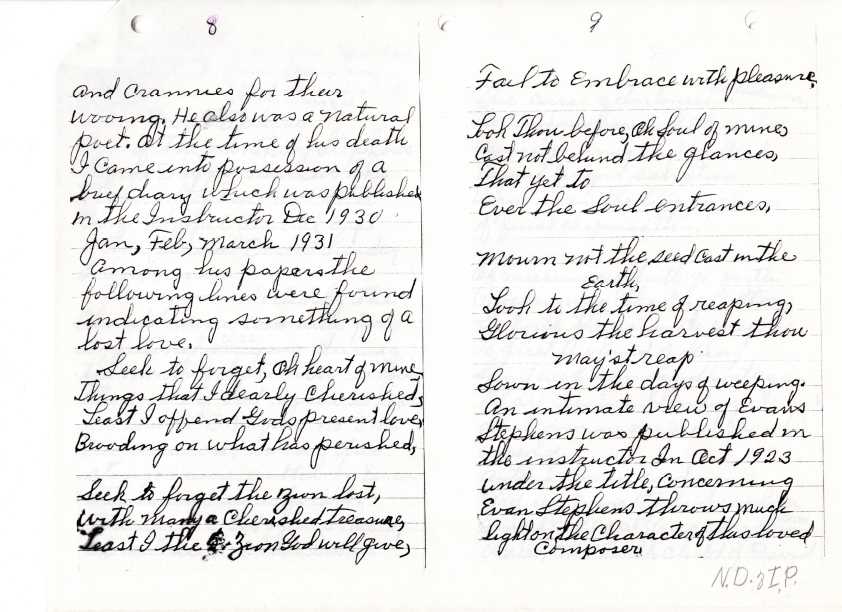 8
and Crannies for their
wooing. He also was a natural
poet. At the time of his death
I came into possession of a
brief diary which was published
in the Instructor Dec 1930
Jan, Feb, March 1931
Among his papers the
following lines were found
indicating something of a
lost love.
Seek to forget, Oh heart of mine
Things that I dearly Cherished,
Least I offend Gods present love,
Brooding on what has perished,
Seek to forget the zion lost,
With many a Cherished treasure,
Least I the Zion God will give,
9
Fail to Embrace with pleasure.
Look Thou before, Oh Soul of mine,
Cast not behind the glances,
That yet to
Ever the Soul entrances.
Mourn not the seed Cast in the
Earth,
Look to the time of reaping,
Glorious the harvest thou
May'st reap
Sown in the days of weeping.
An intimate view of Evans
Stephens was published in
the instructor In Oct 1923
under the title, Concerning
Evan Stephens throws much
light on the Character of this loved
Composer.
N.D. & I.P.